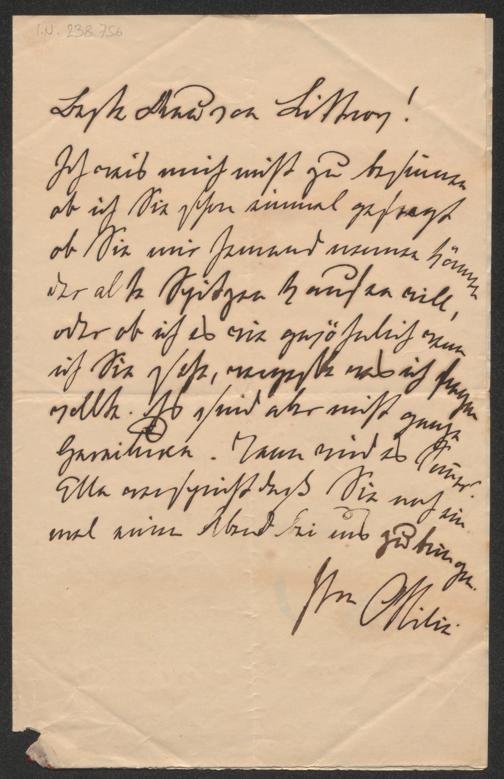 I.N. 238.756
Beste Frau von Littrow!
Ich weis mich nicht zu besinnen
ob ich Sie schon einmal gefragt
ob Sie mir Jemand nennen können
der alte Spitzen kaufen will,
oder ob ich es wie gewöhnlich wenn
ich Sie sehe, vergesse was ich fragen
wollte. Es sind aber nicht ganze
Garnituren. Dann wird es
Ella verspricht daß Sie noch ein
mal einen Abend bei uns zubringen.
Ihre